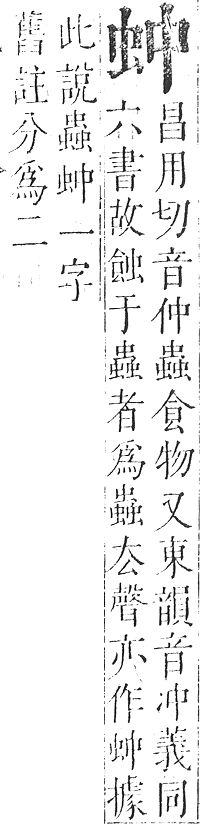 蚛
昌用切音仲蟲食物又東韻音冲義同
六書故蝕于蟲者爲蟲去聲亦作蚛據
此說蟲蚛一字
舊註分爲二